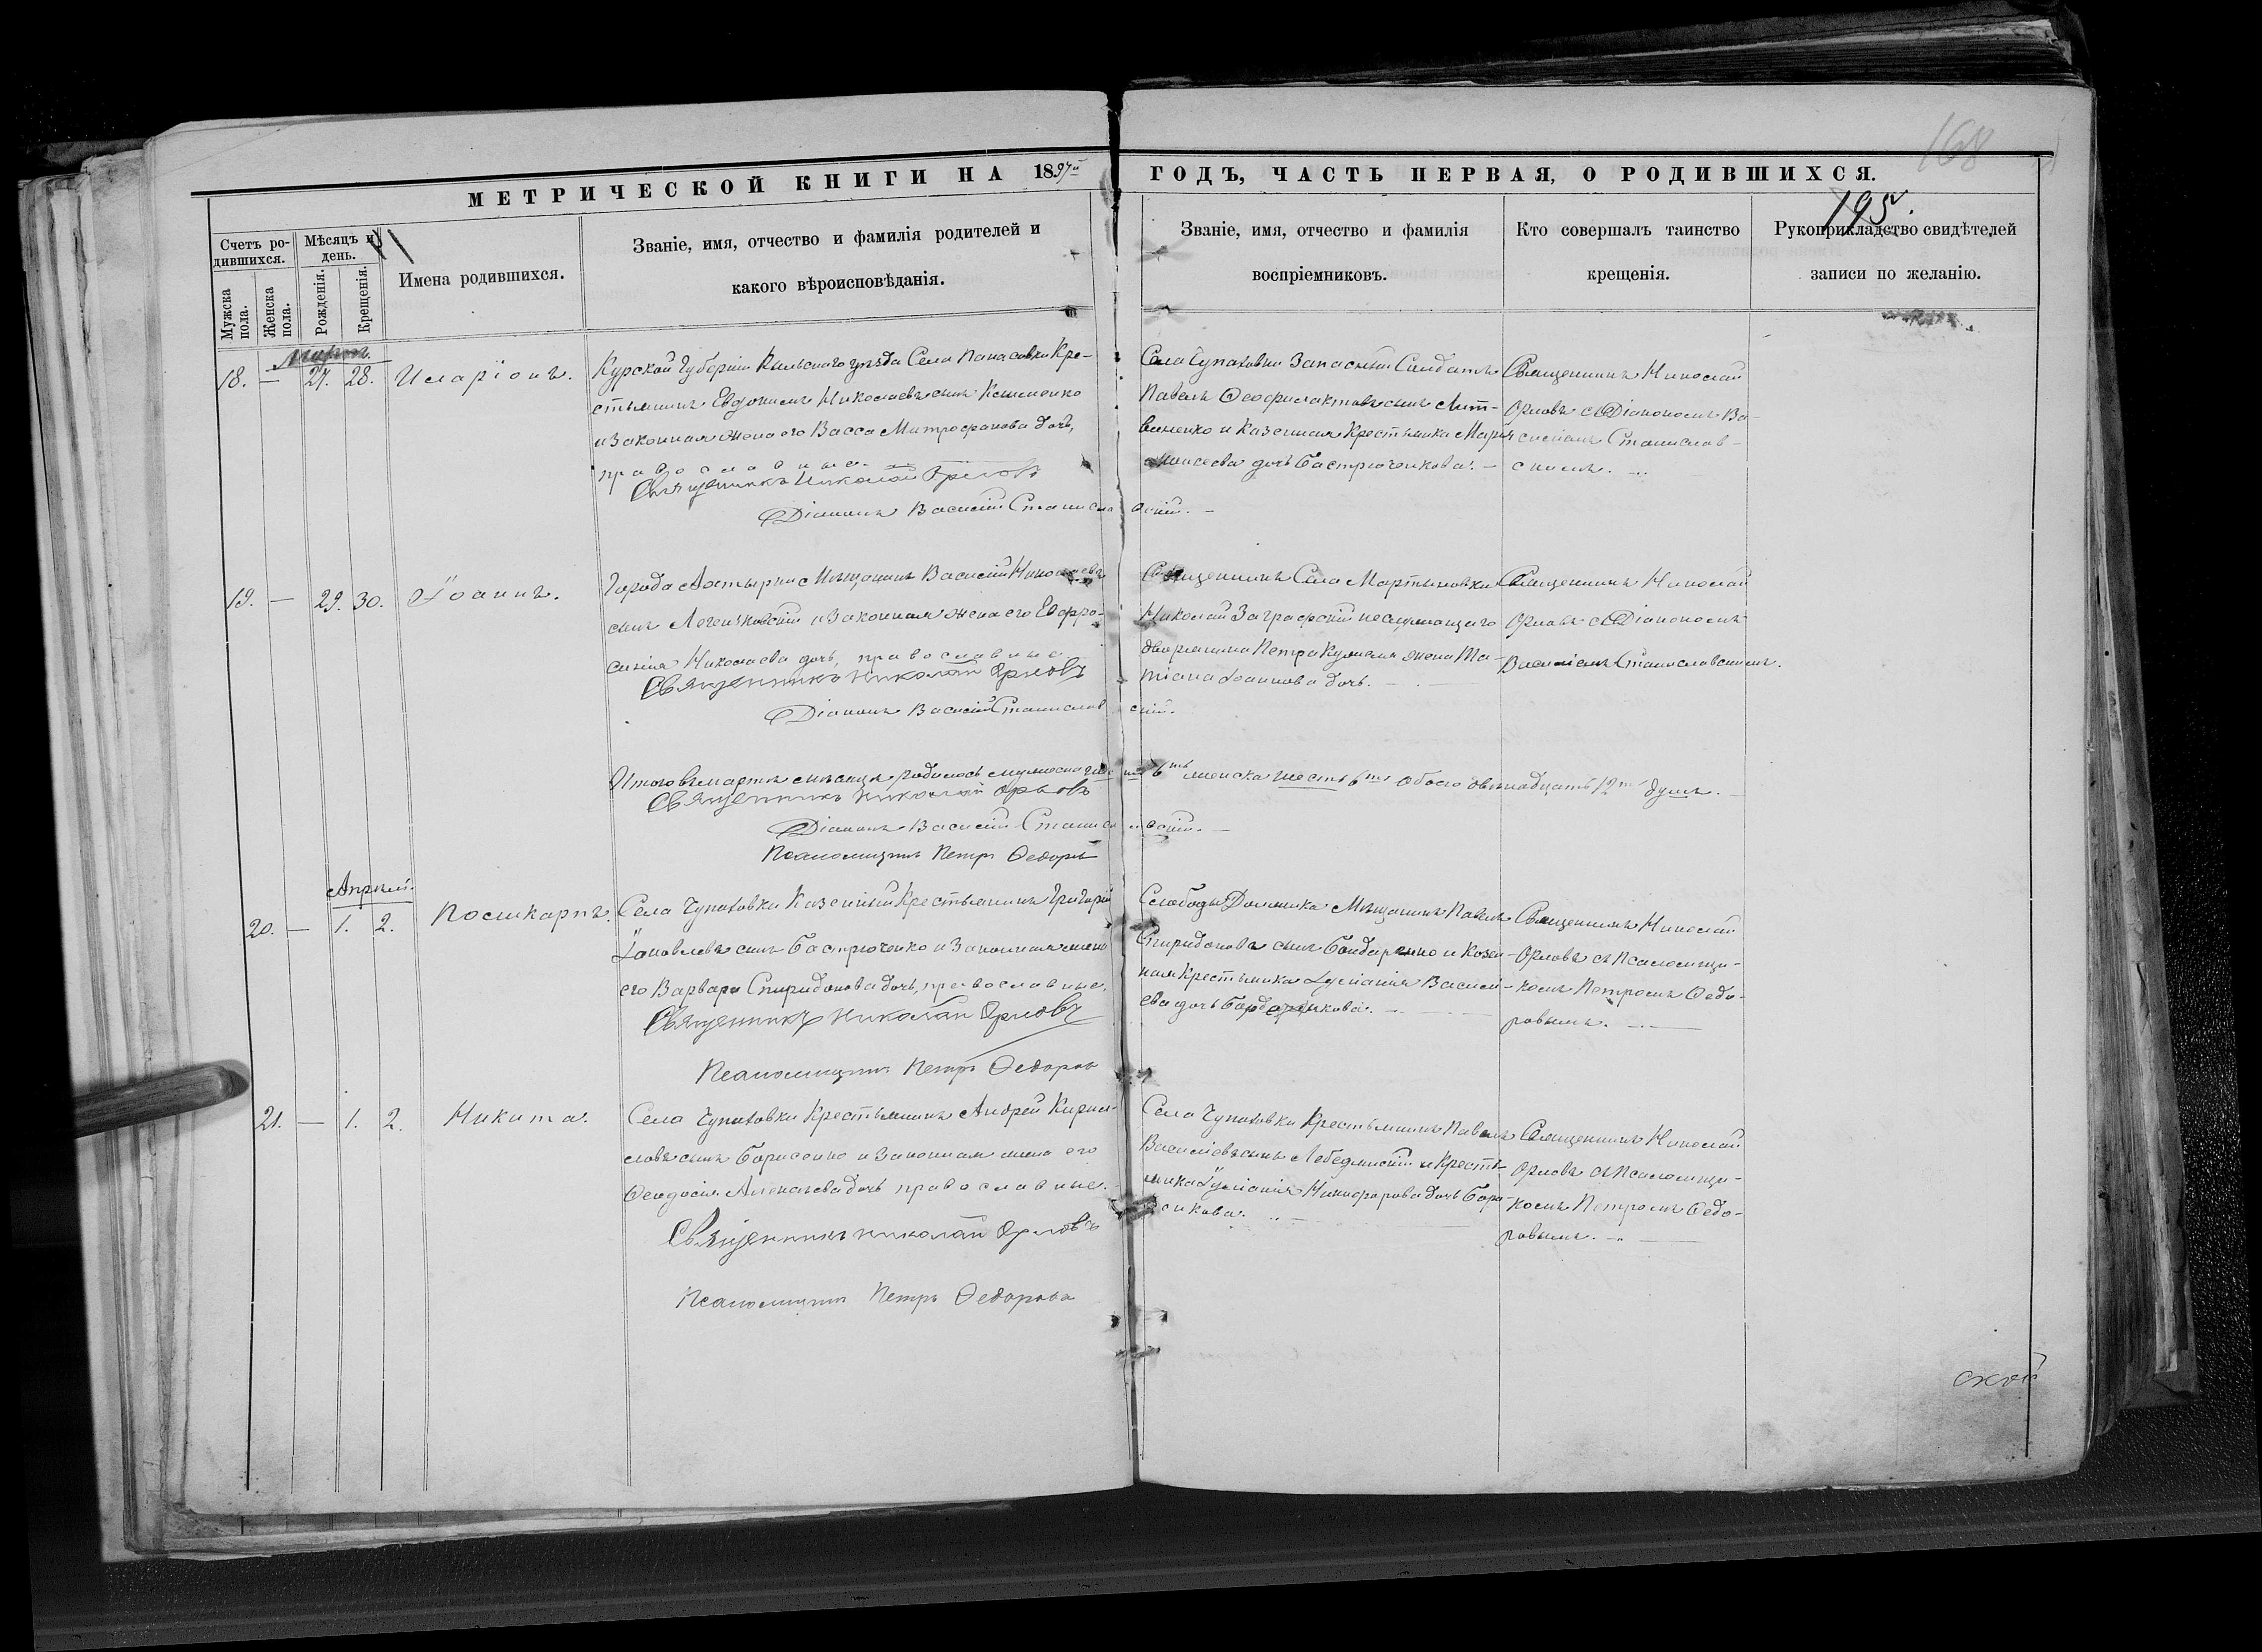 168
МЕТРИЧЕСКОЙ КНИГИ НА 1897й ГОДЪ, ЧАСТЬ ПЕРВАЯ, О РОДИВШИХСЯ.
195.
Счетъ ро-
дившихся.
Мужска пола.
Женска пола.
Мѣсяцъ и
день.
Рожденія.
Крещенія.
Имена родившихся.
Званіе, имя, отчество и фамилія родителей и
какого вѣроисповѣданія.
Званіе, имя, отчество и фамилія
воспріемниковъ.
Кто совершалъ таинство
крещенія.
Рукоприкладство свидѣтелей
записи по желанію.
Мартъ.
18. — 27. 28. Иларіонъ.
Курской Губерніи Рыльскаго уѣзда Села Кре-
стьянинъ Евдокимъ Николаевъ сынъ
и законная жена его Васса Митрофанова дочь,
православные.
Священникъ Николай Орловъ
Діаконъ Василій Станиславскій.
Села Чупаховки Запасный Солдатъ
Павелъ Ѳеофилактовъ сынъ Лит-
виненко и Казенная Крестьянка Марія
Моисеева дочь Бастрюченкова. —
Священникъ Николай
Орловъ съ Діакономъ Ва-
силіемъ Станислав-
скимъ.
19. — 29. 30. Іоаннъ.
Города Ахтырки Мѣщанинъ Василій Николаевъ
сынъ и законная жена его Евфро-
синія Николаева дочь, православные.
Священникъ Николай Орловъ
Діаконъ Василій Станиславскій.
Священникъ Села Мартыновки
Николай Заграфскій неслужащаго
дворянина Петра жена Та-
тіана Іоаннова дочь. —
Священникъ Николай
Орловъ съ Діакономъ
Василіемъ Станиславскимъ.
Итого въ мартѣ мѣсяцѣ родилось мужеска шесть 6ть женска шесть 6ть обоего двѣнадцать 12ть душъ.
Священникъ Николай Орловъ
Діаконъ Василій Станиславскій. —
Псаломщикъ Петръ Ѳедоровъ
Апрѣль.
20. — 1. 2. Поликарпъ.
Села Чупаховки Казенный Крестьянинъ Григорій
Іаковлевъ сынъ Бастрюченко и Законная жена
его Варвара Спиридонова дочь, православные.
Священникъ Николай Орловъ
Псаломщикъ Петръ Ѳедоровъ
Слободы Мѣщанинъ Павелъ
Спиридоновъ сынъ Бондаренко и Казен-
ная Крестьянка Іуліанія Васили-
ева дочь
Священникъ Николай
Орловъ съ Псаломщи-
комъ Петромъ Ѳедо-
ровымъ. —
21. — 1. 2. Никита.
Села Чупаховки Крестьянинъ Андрей Кирил-
ловъ сынъ Борисенко и Законная жена его
Ѳеодосія Алексѣева дочь православные.
Священникъ Николай Орловъ
Псаломщикъ Петръ Ѳедоровъ
Села Чупаховки Крестьянинъ Павелъ
Василіевъ сынъ Лебединскій и Кресть-
янка Іуліанія Никифорова дочь Бори-
сенкова. —
Священникъ Николай
Орловъ съ Псаломщи-
комъ Петромъ Ѳедо-
ровымъ. —
ской